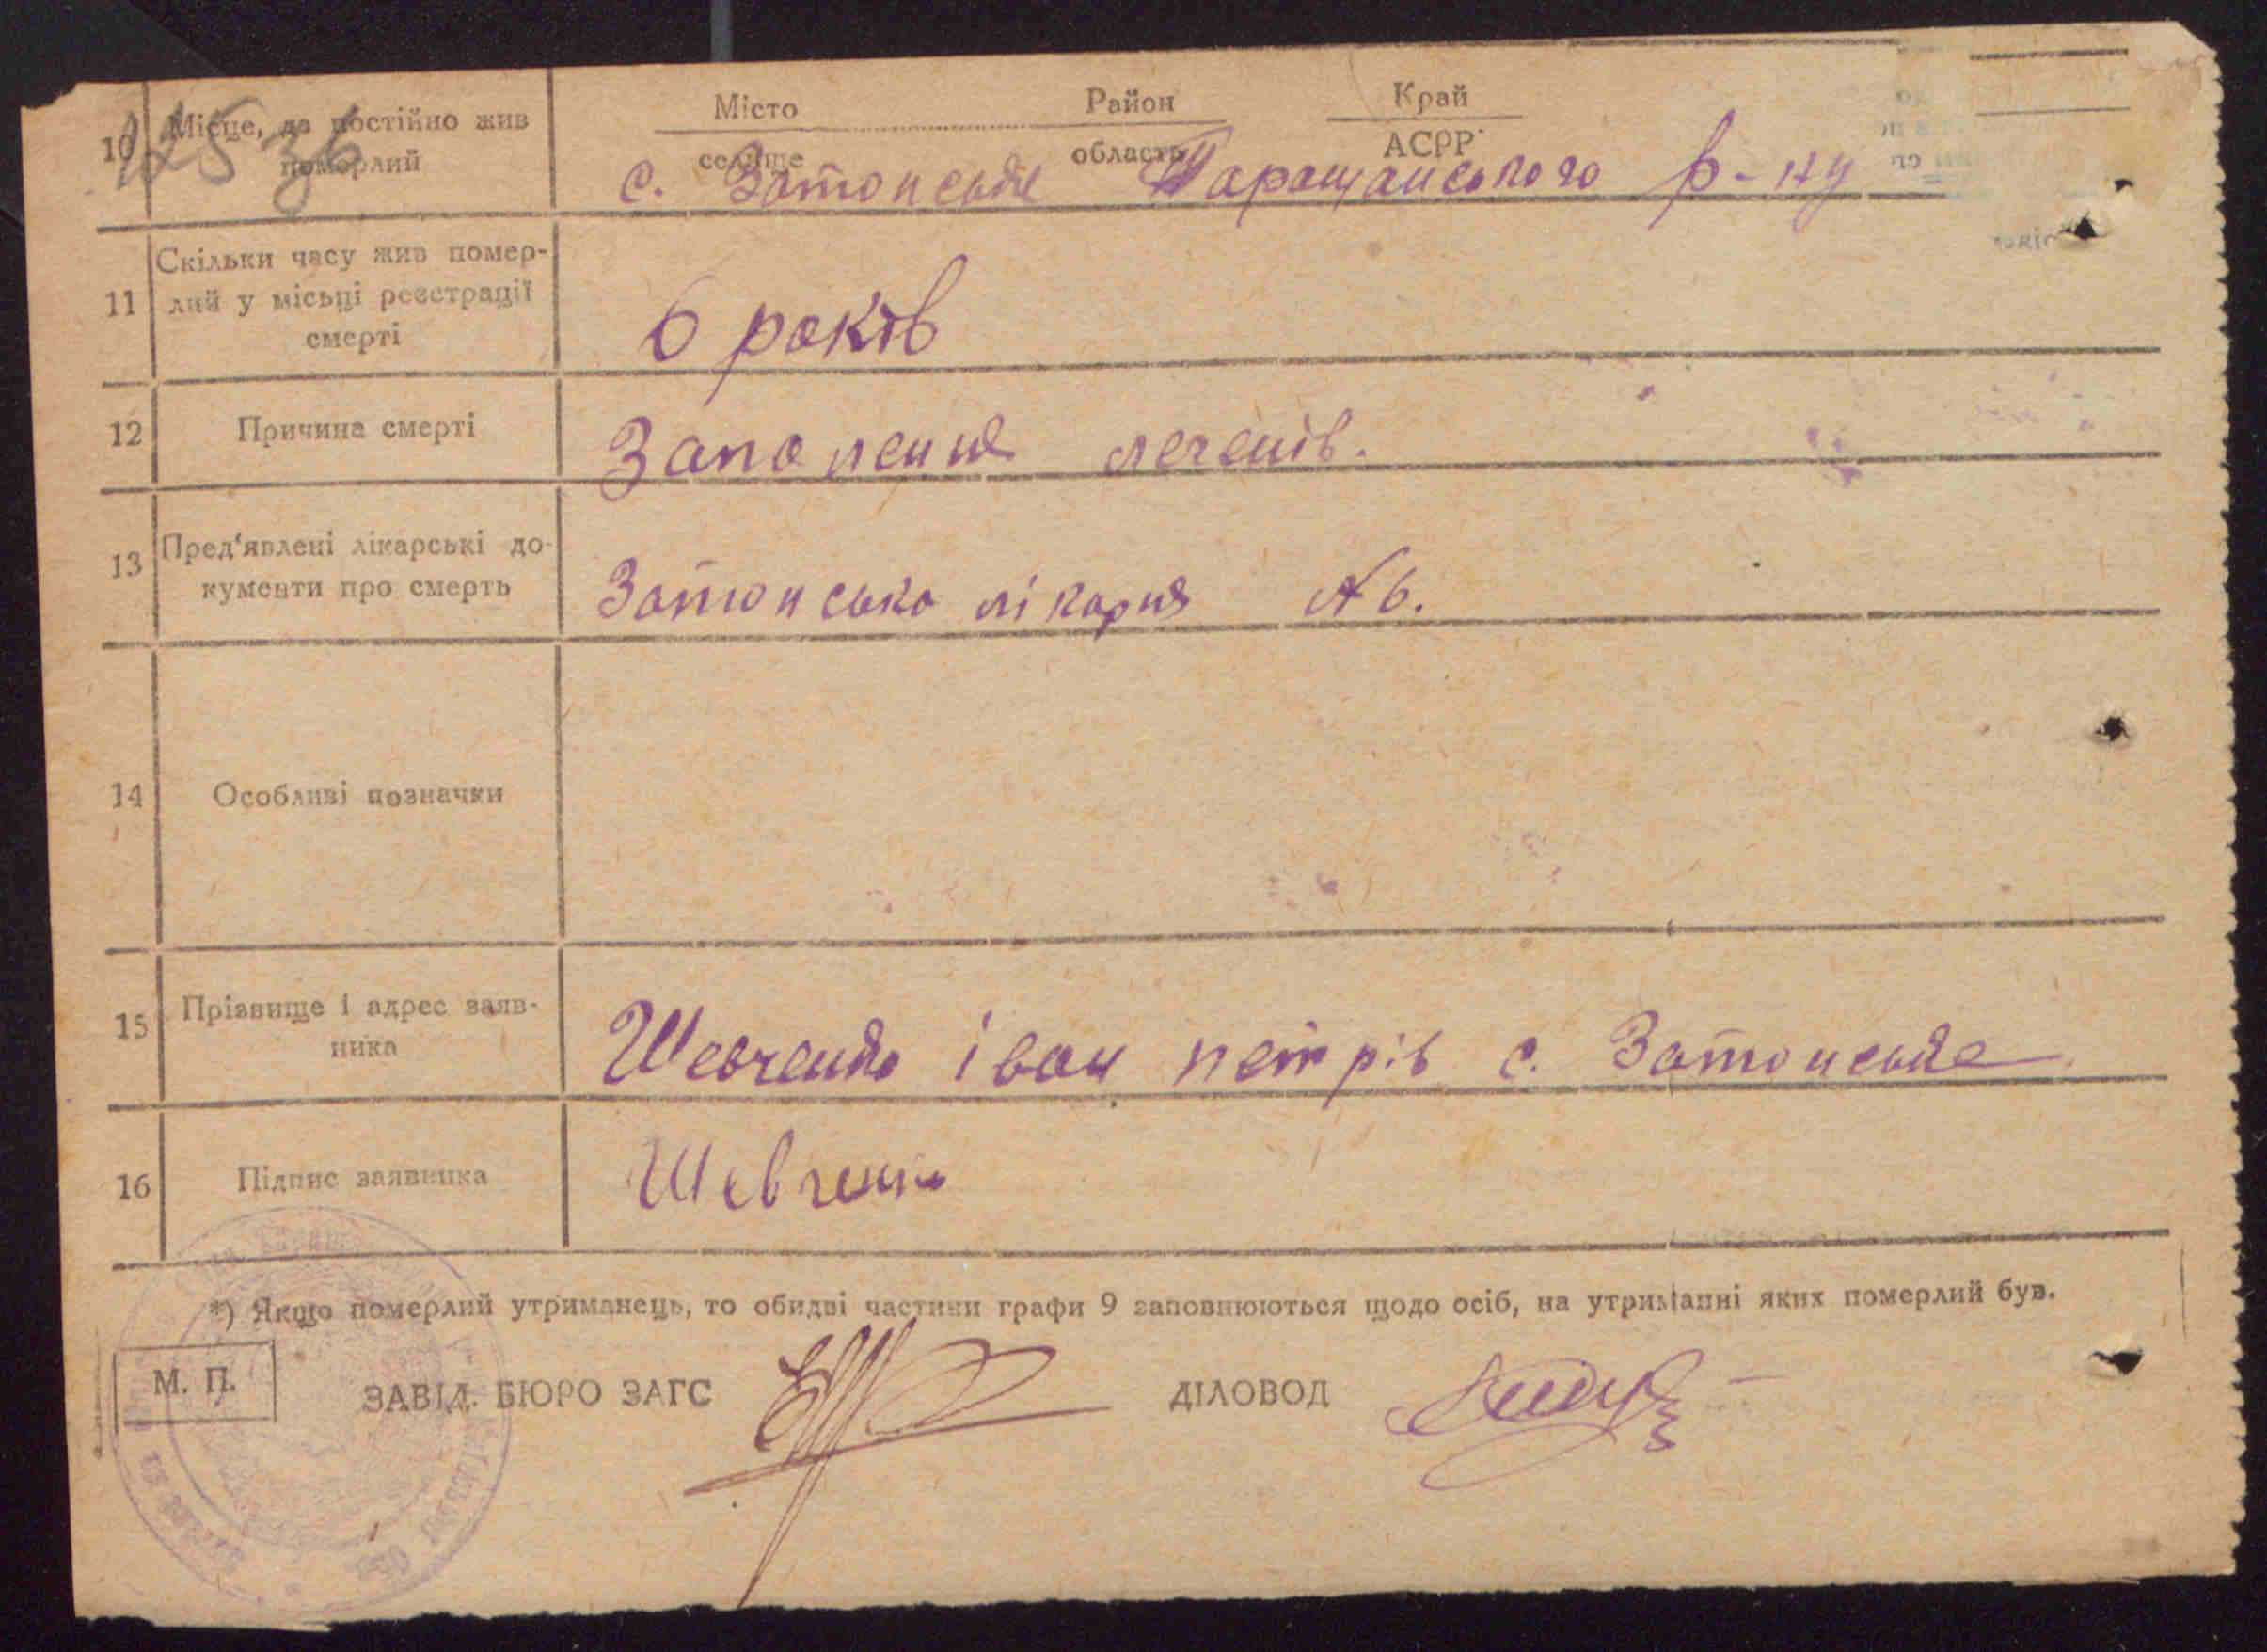 10 Місце, де постійно жив Місто Район Край
померлий селище область АСРР
с. Затонське Таращанського р-ну
Скільки часу жив помер-
11 лий у місьці реєстрації 6 років
смерті
12 Причина смерті Запалення легенів.
13 Пред'явлені лікарські до-
кументи про смерть Затонська лікарня № 6.
14 Особливі позначки
15 Прізвище і адрес заяв-
ника Шевченко іван петрів с. Затонське
16 Підпис заявника Шевченко
*) Якщо померлий утриманець, то обидві частини графи 9 заповнюються щодо осіб, на утриманні яких померлий був.
М. П. ЗАВІД. БЮРО ЗАГС ДІЛОВОД